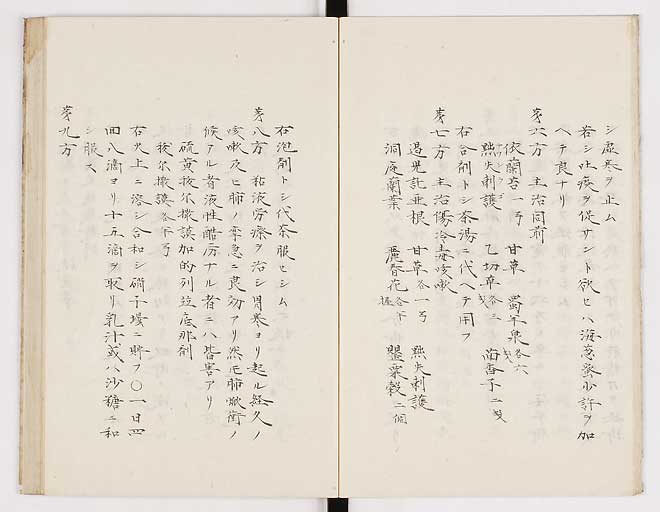 シ虚寒ヲ止ム
若シ吐痰ヲ促サント欲セハ海葱蜜少許ヲ加
ヘテ良ナリ
第六方 主治同前
依蘭苔一弓 甘草 蜀羊泉各六
㸃失刺護 乙切草各三 茴香子二
右合剤トシ茶湯ニ代ヘテ用フ
第七方 主治傷冷毒咳嗽
遏児託亜根 甘草各一弓 㸃失刺護
洞庭蘭葉 麗春花各 罌粟殻二個
右泡剤トシ代茶服セシム
第八方 粘液労瘵ヲ治シ胃寒ヨリ起ル経久ノ
咳嗽及ヒ肺ノ壅急ニ良効アリ然モ肺焮衝ノ
候アル者液性酷厲ナル者ニハ皆害アリ
硫黄抜尓撒謨加的列並底那剤
抜尓撒謨各
右火上ニ溶シ合和シ硝子壜ニ貯フ〇一日四
回八滴ヨリ十五滴ヲ取リ乳汁或ハ沙糖ニ和
シ服ス
第九方